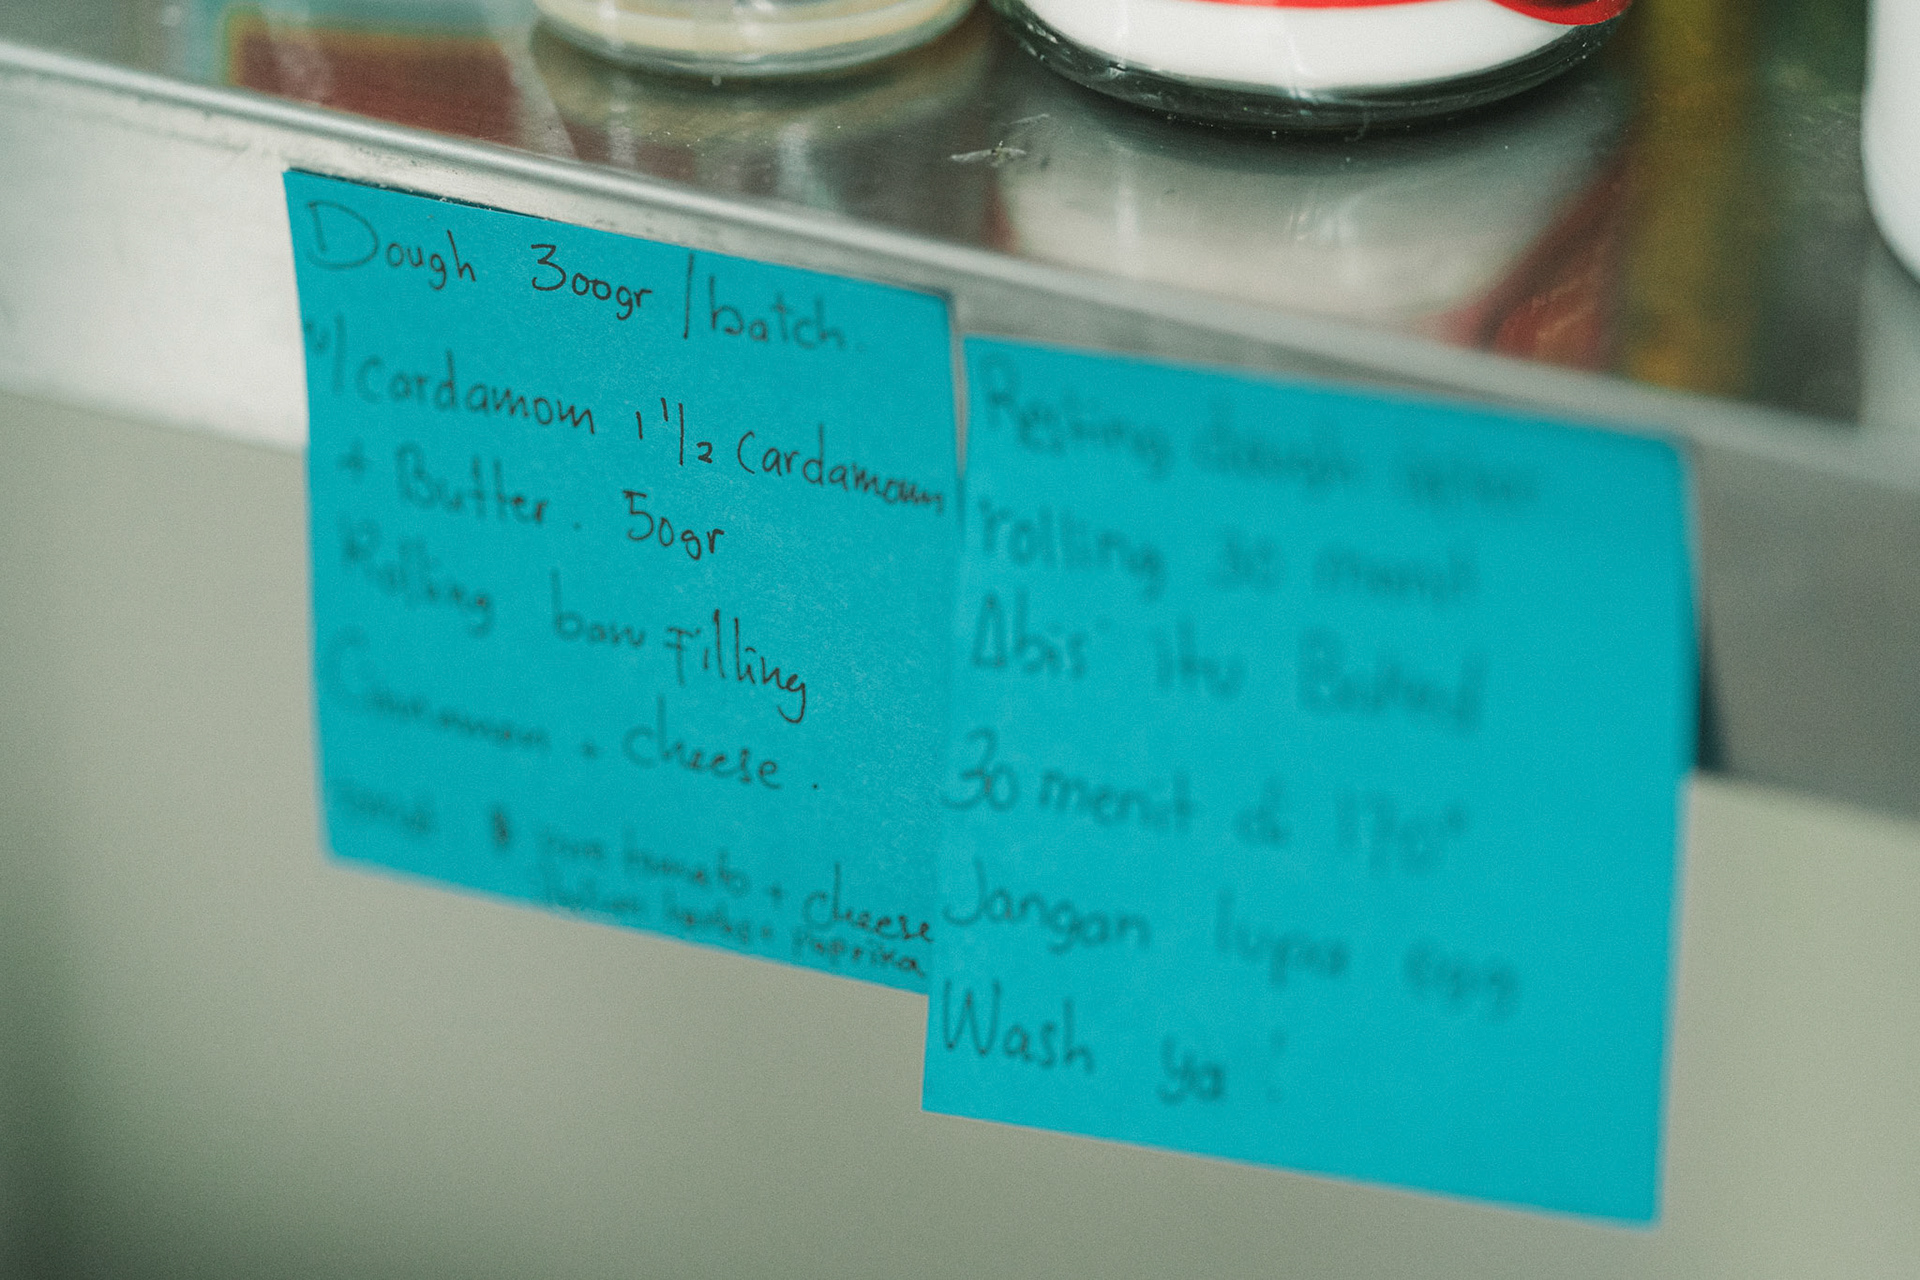 Dough 300gr / batch
w/ Cardamom 1 1/2 Cardamom
+ Butter. 50gr
Rolling baru Filling
Cinnamon + cheese.
tomato + cheese
herbs + paprika
Resting dough
rolling 30 menit
Abis itu Baked
30 menit di 170°
Jangan lupa egg
Wash ya!